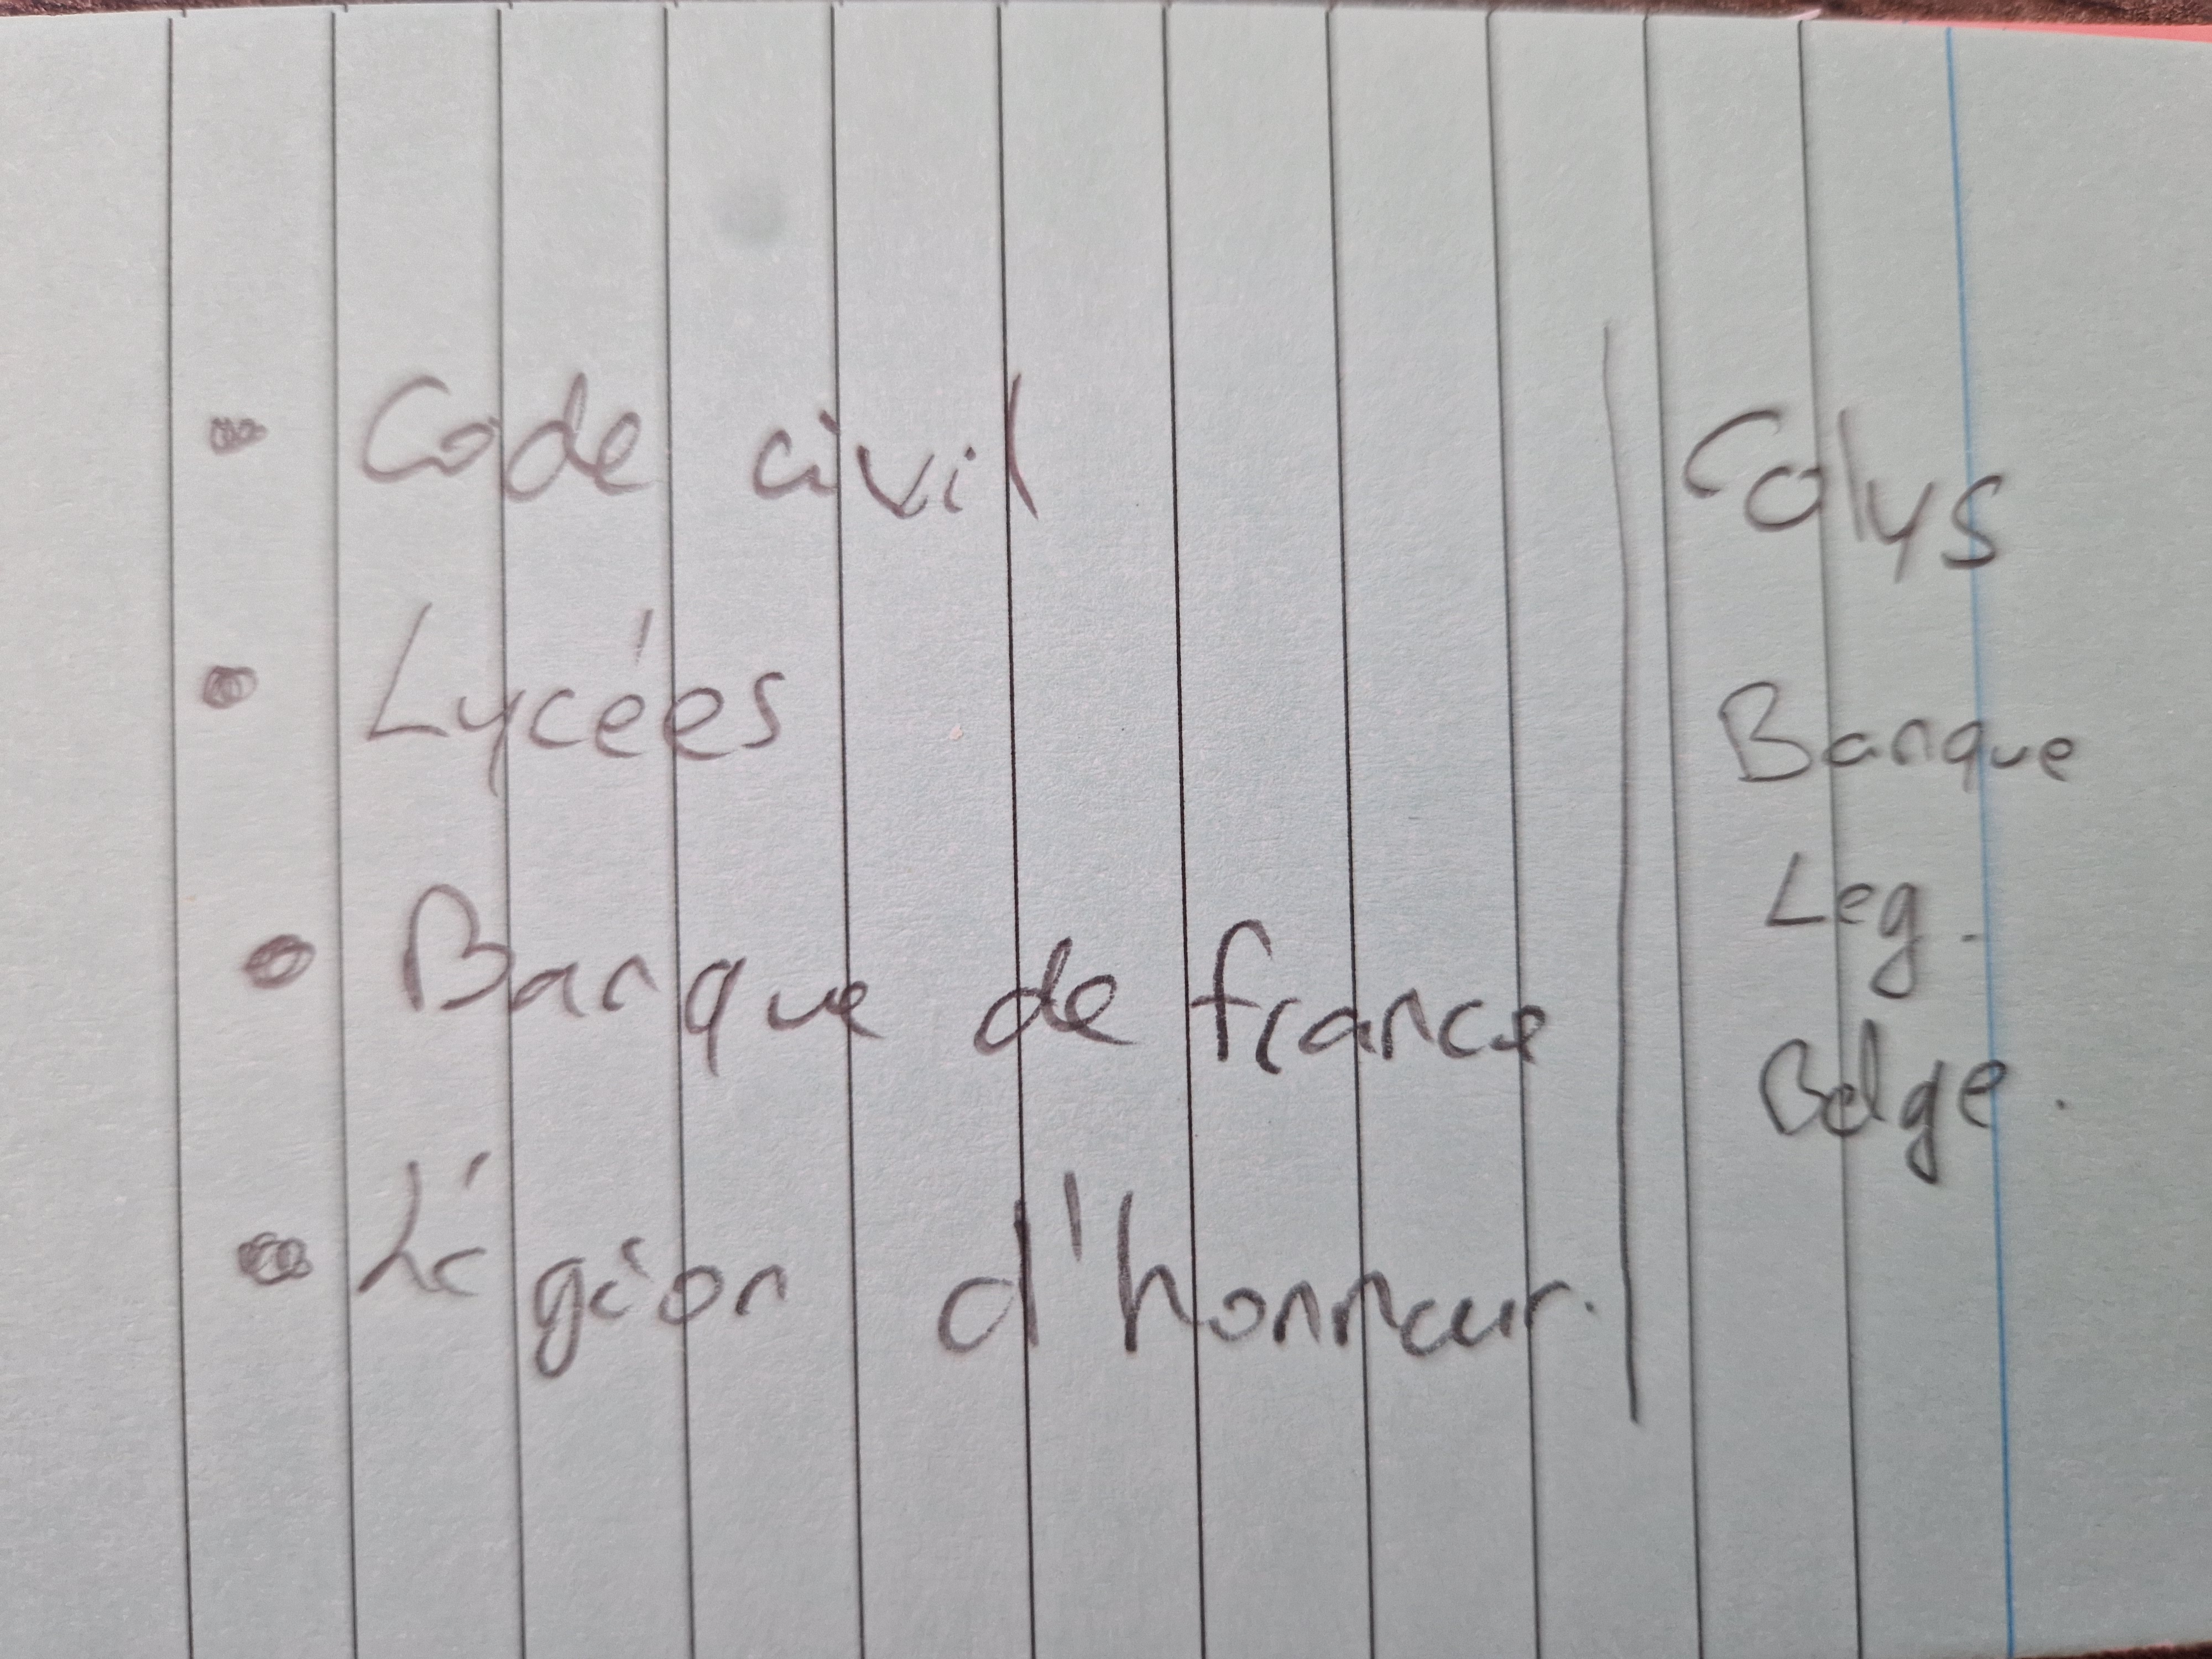 • Code civil
• Lycées
• Banque de france
• Légion d'honneur.
Colys
Banque
Leg.
Belge.